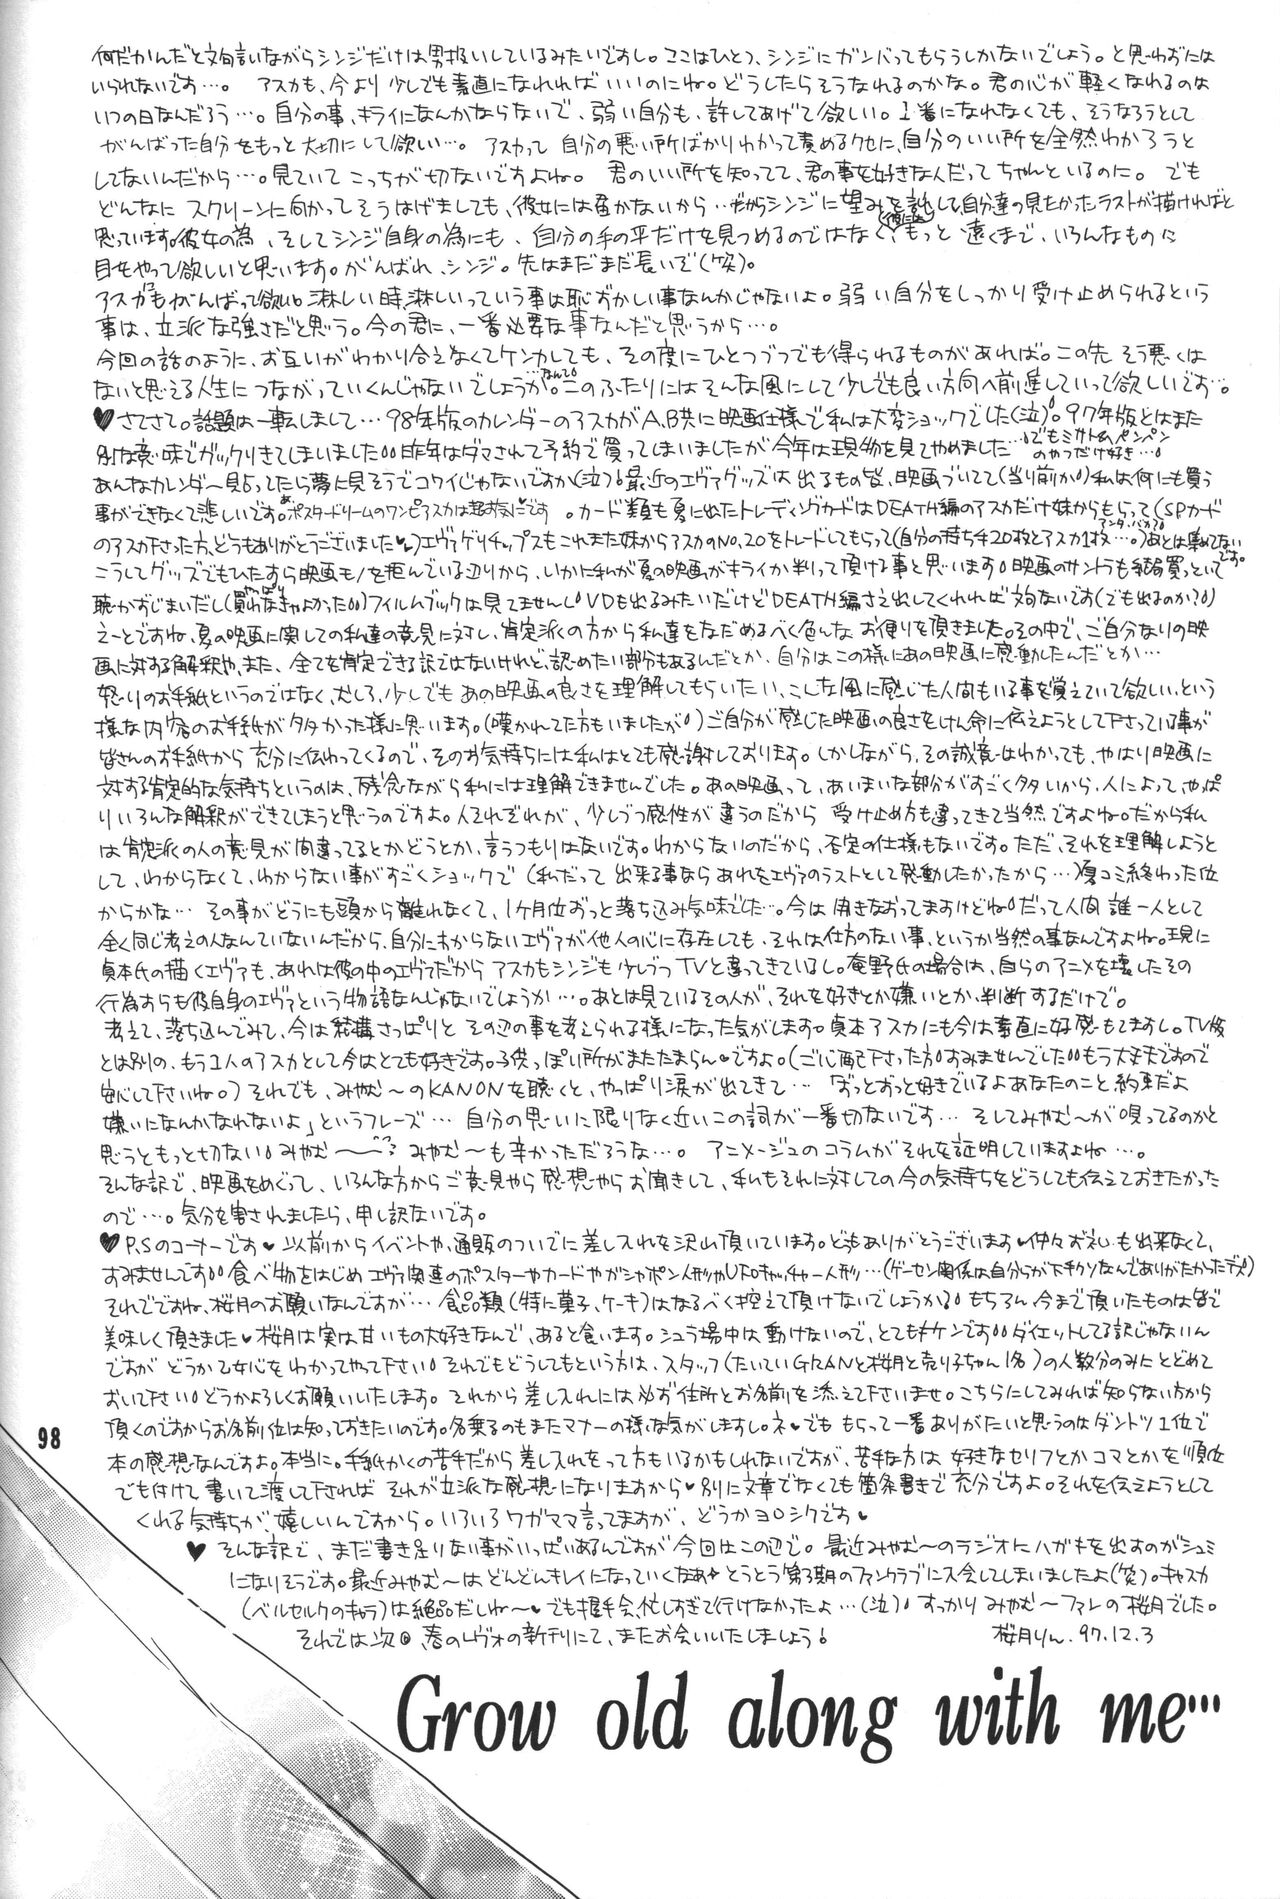 何だかんだと文句言いながらシンジだけは男扱いしているみたいですし。ここはひとつ、シンジにガンバってもらうしかないでしょう。と思わずには
いられないです…。 アスカも、今より少しでも素直になれればいいのにね。どうしたらそうなれるのかな。君の心が軽くなれるのは
いつの日なんだろう…。自分の事、キライになんかならないで、弱い自分も、許してあげて欲しい。1番になれなくても、そうなろうとして
がんばった自分をもっと大切にして欲しい…。 アスカって自分の悪い所ばかりわかって責めるクセに、自分のいい所を全然わかろうと
してないんだから…。見ていてこっちが切ないですよね。 君のいい所を知ってて、君の事を好きな人だってちゃんといるのに。 でも
どんなにスクリーンに向かってそうはげましても、彼女には届かないから…だからシンジに望みを託して、自分達の見たかったラストが描ければと
思っています。彼女の為、そしてシンジ自身の為にも、自分の手の平だけを見つめるのではなく、もっと遠くまで、いろんなものに
目をやって欲しいと思います。がんばれ、シンジ。先はまだまだ長いぞ(笑)。
アスカもがんばって欲しい。淋しい時、淋しいっていう事は恥ずかしい事なんかじゃないよ。弱い自分をしっかり受け止められるという
事は、立派な強さだと思う。今の君に、一番必要な事なんだと思うから…。
今回の話のように、お互いがわかり合えなくてケンカしても、その度にひとつづつでも得られるものがあれば。この先そう悪くは
ないと思える人生につながっていくんじゃないでしょうか。…なんて。このふたりにはそんな風にして少しでも良い方向へ前進していって欲しいです…。
♥さてさて。話題は一転しまして…98年版のカレンダーのアスカがA,B共に映画仕様で私は大変ショックでした(泣)。97年版とはまた
別な意味でガックリきてしまいました。昨年はダマされて予約で買ってしまいましたが今年は現物を見てやめました…でもミサトさんペンペンのやつだけ好き…。
あんなカレンダー見とったら夢に見そうでコワイじゃないですか(泣)。最近のエヴァグッズは出るもの皆、映画づいてて(当り前か)私は何にも買う
事ができなくて悲しいです。あ、ポスタードリームのワンピアスカは超お気にです。カード類も夏に出たトレーディングカードはDEATH編のアスカだけ妹からもらって(SPカード
のアスカ下さった方、どうもありがとうございました♥)エヴァゲリチップスもこれまた妹からアスカのNo,20をトレードしてもらって(自分の持ち手20枚とアスカ1枚…アンタ、バカァ?)あとは集めてないです。
こうしてグッズでもひたすら映画モノを拒んでいる辺りから、いかに私が夏の映画がキライか判って頂ける事と思います。映画のサントラも結局買っといて
聴かずじまいだし(やっぱり買わなきゃよかった)フィルムブックは見てませんし。VDも出るみたいだけどDEATH編さえ出してくれれば文句ないです(でも出るのか?)
えーとですね、夏の映画に関しての私達の意見に対し、肯定派の方から私達をなだめるべく色んなお便りを頂きました。その中で、ご自分なりの映
画に対する解釈や、また、全てを肯定できる訳ではないけれど、認めたい部分もあるんだとか、自分はこの様にあの映画に感動したんだとか…
怒りのお手紙というのではなく、むしろ、少しでもあの映画の良さを理解してもらいたい、こんな風に感じた人間もいる事を覚えていて欲しい、という
様な内容のお手紙が多かった様に思います。(嘆かれてた方もいましたが)ご自分が感じた映画の良さをけん命に伝えようとして下さっている事が
皆さんのお手紙から充分に伝わってくるので、そのお気持ちには私はとても感謝しております。しかしながら、その誠意はわかっても、やはり映画に
対する肯定的な気持ちというのは、残念ながら私には理解できませんでした。あの映画って、あいまいな部分がすごく多いから、人によって、やっぱ
りいろんな解釈ができてしまうと思うのですよ。人それぞれが、少しづつ感性が違うのだから受け止め方も違ってきて当然ですよね。だから私
は肯定派の人の意見が間違ってるとかどうとか、言うつもりはないです。わからないのだから、否定の仕様もないです。ただ、それを理解しようと
して、わからなくて、わからない事がすごくショックで(私だって出来る事ならあれをエヴァのラストとして感動したかったから…)夏コミ終わった位
からかな…その事がどうにも頭から離れなくて、1ヶ月位ずっと落ち込み気味でした…。今は開きなおってますけどね。だって人間誰一人として
全く同じ考えの人なんていないんだから、自分にわからないエヴァが他人の心に存在しても、それは仕方のない事、というか当然の事なんですよね。現に
貞本氏の描くエヴァも、あれは彼の中のエヴァだからアスカもシンジも少しづつTVと違ってきているし。庵野氏の場合は、自らのアニメを壊したその
行為すらも彼自身のエヴァという物語なんじゃないでしょうか…。あとは見ているその人が、それを好きとか嫌いとか、判断するだけで。
考えて、落ち込んでみて、今は結構さっぱりとその辺の事を考えられる様になった気がします。貞本アスカにも今は素直に好感もてますし。TV版
とは別の、もう1人のアスカとして今はとても好きです。子供っぽい所がまたたまらん♥ですよ。(ご心配下さった方、すみませんでした。もう大丈夫ですので
安心して下さいね。)それでも、みやむ〜のKANONを聴くと、やっぱり涙が出てきて… 「ずっとずっと好きでいるよあなたのこと約束だよ
嫌いになんかなれないよ」というフレーズ… 自分の思いに限りなく近いこの詞が一番切ないです… そしてみやむ〜が唄ってるのかと
思うともっと切ない。みやむ〜〜? みやむ〜も辛かっただろうな…。 アニメージュのコラムがそれを証明していますよね…。
そんな訳で、映画をめぐって、いろんな方からご意見やら感想やらお聞きして、私もそれに対しての今の気持ちをどうしても伝えておきたかった
ので…。気分を害されましたら、申し訳ないです。
♥P.Sのコーナーです♥以前からイベントや、通販のついでに差し入れを沢山頂いています。どうもありがとうございます♥仲々お礼も出来なくて、
すみませんです。食べ物をはじめエヴァ関連のポスターやカードやガシャポン人形やUFOキャッチャー人形…(ゲーセン関係は自分らが下手クソなんでありがたかったデス)
それでですね、桜月のお願いなんですが…食品類(特に菓子、ケーキ)はなるべく控えて頂けないでしょうか。もちろん、今まで頂いたものは皆で
美味しく頂きました♥桜月は実は甘いもの大好きなんで、あると食います。シュラ場中は動けないので、とてもキケンです。ダイエットしてる訳じゃないん
ですがどうか乙女心をわかってやって下さい。それでもどうしてもという方は、スタッフ(たいていGRANと桜月と売り子ちゃん1名)の人数分のみにとどめて
おいて下さい。どうかよろしくお願いいたします。それから差し入れには必ず住所とお名前を添えて下さいませ。こちらにしてみれば知らない方から
頂くのですからお名前位は知っておきたいのです。名乗るのもまたマナーの様な気がしますし。ネ♥でももらって一番ありがたいと思うのはダントツ1位で
本の感想なんですよ。本当に。手紙かくの苦手だから差し入れをって方もいるかもしれないですが、苦手な方は好きなセリフとかコマとかを順位
でも付けて書いて渡して下されば それが立派な感想になりますから♥別に文章でなくても箇条書きで充分ですよ。それを伝えようとして
くれる気持ちが、嬉しいんですから。いろいろワガママ言ってますが、どうかヨロシクです♥
♥そんな訳で、まだ書き足りない事がいっぱいあるんですが今回はこの辺で。最近みやむ〜のラジオにハガキを出すのがシュミ
になりそうです。最近みやむ〜はどんどんキレイになっていくなあ。とうとう第3期のファンクラブに入会してしまいましたよ(笑)。キャスカ
(ベルセルクのキャラ)は絶品だしね〜♥でも握手会、忙しすぎて行けなかったよ…(泣)。すっかりみやむ〜ファンの桜月でした。
それでは次は、春のレヴォの新刊にて、またお会いいたしましょう! 桜月りん.97.12.3
Grow old along with me…
98